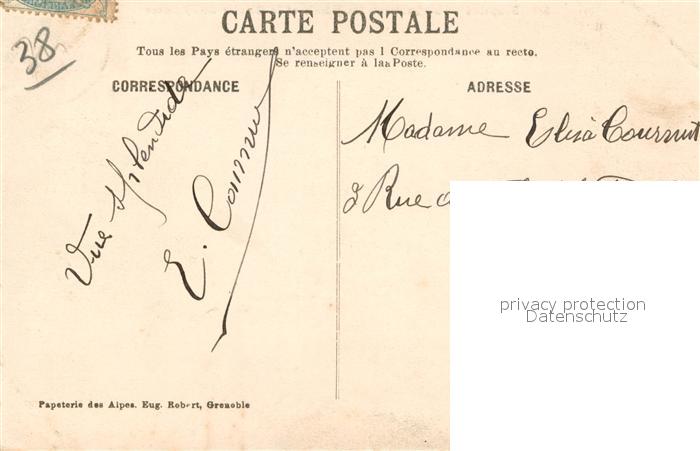 38
CARTE POSTALE
Tous les Pays étrangers n'acceptent pas l Correspondance au recto.
Se renseigner à laa Poste.
CORRESPONDANCE
Vue splendide
E.
ADRESSE
Madame Elisa Cournut
3 Rue
privacy protection
Datenschutz
Papeterie des Alpes. Eug. Robert, Grenoble